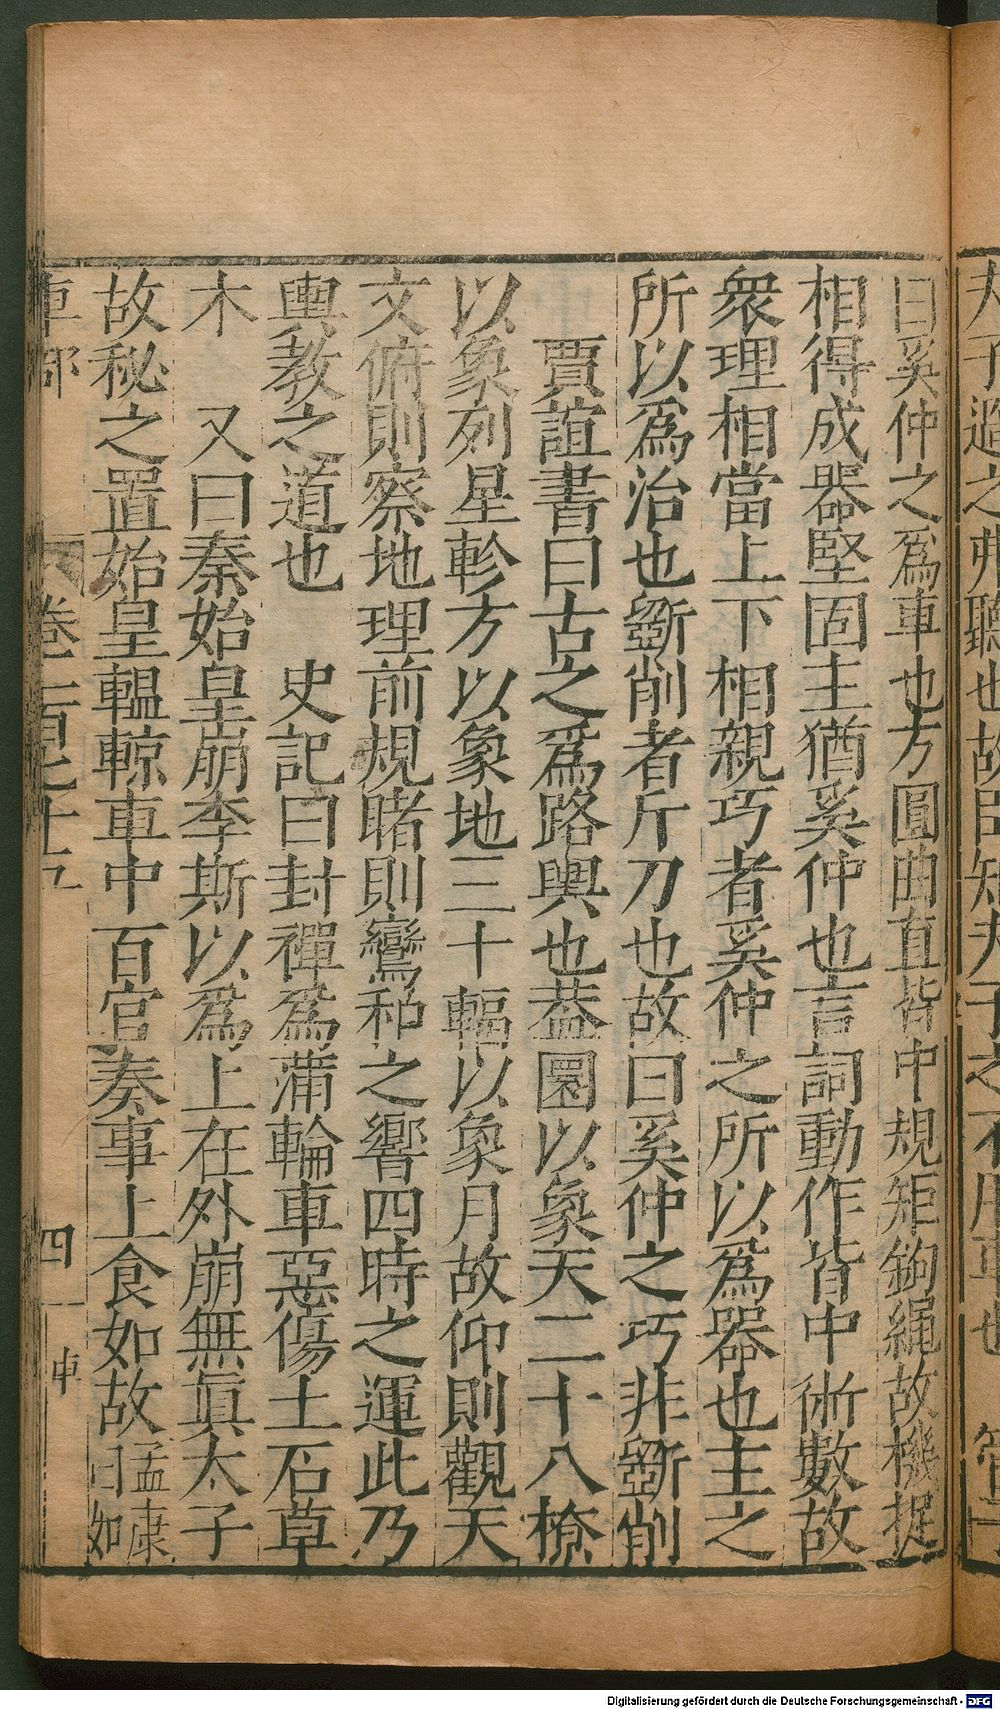 夫子過之弗聽也故
曰奚仲之爲車也方圓曲直皆中規矩鉤繩故機挺
相得成器堅固主猶奚仲也言詞動作皆中術數故
衆理相當上下相親巧者奚仲之所以爲器也主之
所以爲治也斵削者斤刀也故曰奚仲之巧非斵削
賈誼書曰古之爲路輿也葢圜以象天二十八橑
以象列星軫方以象地三十輻以象月故仰則觀天
文俯則察地理前規睹則鸞和之響四時之運此乃
輿教之道也　史記曰封禪爲蒲輪車惡傷土石草
木　又曰秦始皇崩李斯以爲上在外崩無眞太子
故秘之置始皇輼輬車中百官奏事上食如故孟康曰如
車部　卷一百七十九　四　車
Digitalisierung gefördert durch die Deutsche Forschungsgemeinschaft - DFG